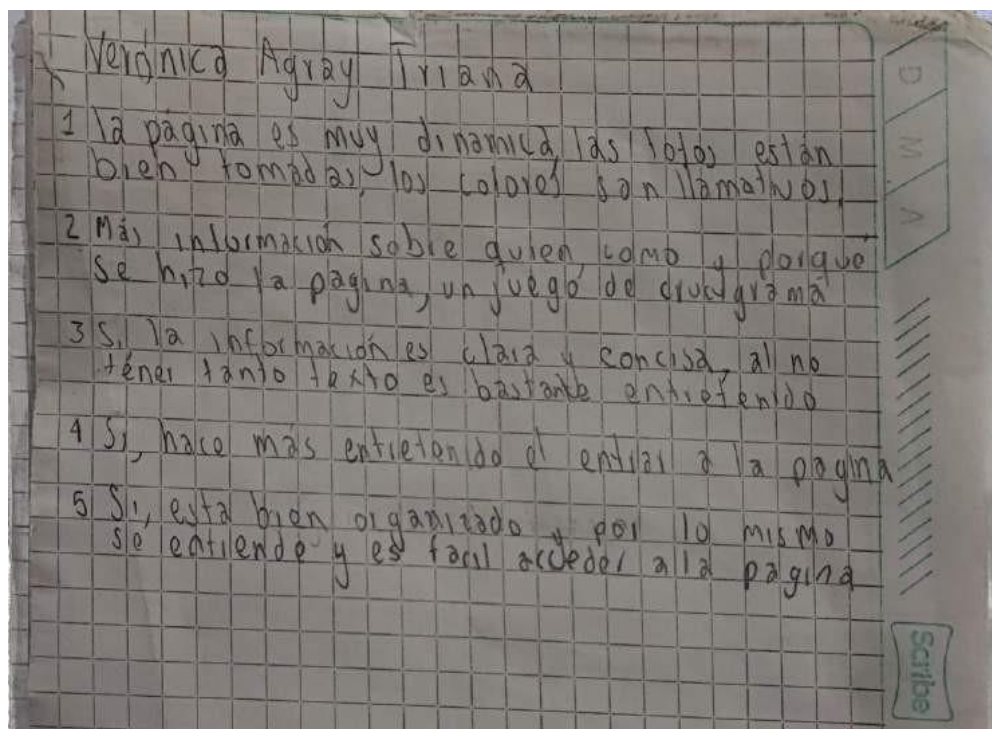 Verónica Agray Triana
1 la página es muy dinamica, las fotos están
bien tomadas, los colores son llamativos,
2 Más información sobre quien, como y porque
se hizo la pagina, un juego de crucigrama
3 Si, la información es clara y concisa, al no
tener tanto texto es bastante entretenido
4 Si, hace más entretenido el entrar a la pagina
5 Si, esta bien organizado y por lo mismo
se entiende y es facil acceder a la pagina
D M A
Scribe